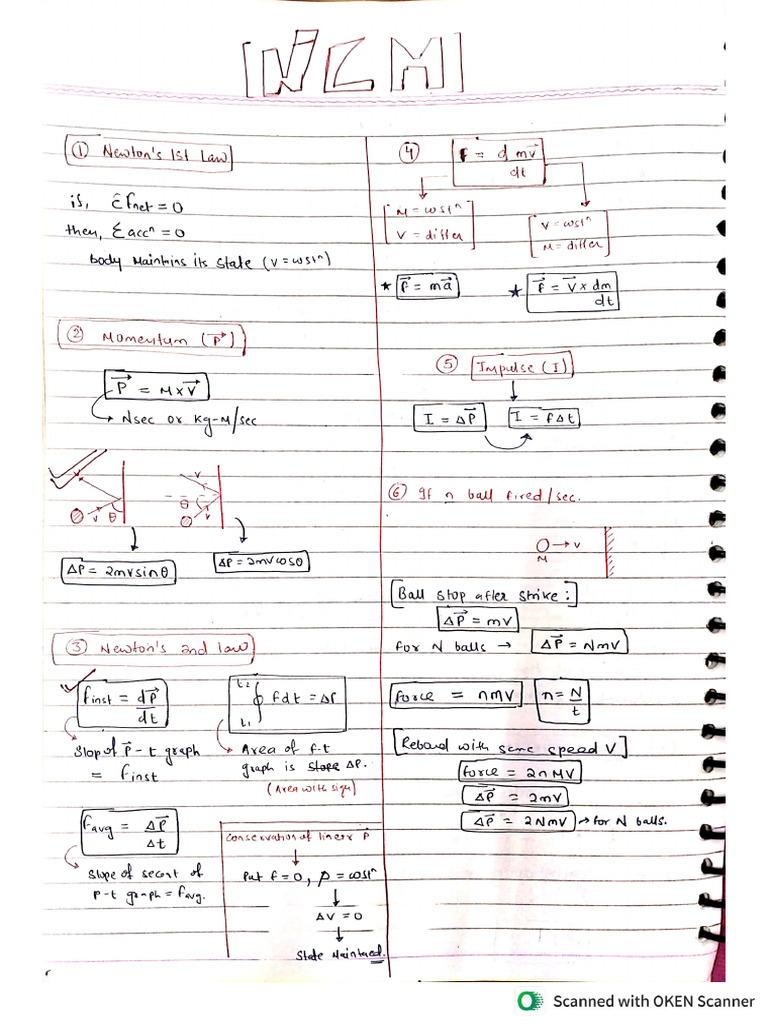 NLM
① Newton's 1st Law
if, ΣFnet = 0
then, Σaccⁿ = 0
body Maintains its State (V = costⁿ)
② Momentum (P⃗)
P⃗ = M×V⃗
Nsec or Kg-M/sec
v θ
v θ v
ΔP = 2mvsinθ
ΔP = 2mvcosθ
③ Newton's 2nd law
Finst = dP⃗/dt
Slop of P⃗-t graph
= Finst
t₂ ∮ t₁ Fdt = ΔP
Area of f-t
graph is slope ΔP.
(Area with sign)
Favg = ΔP⃗/Δt
Slope of secant of
P-t graph = Favg.
Conservation of linear P⃗
Put f = 0, P = costⁿ
ΔV = 0
State Maintained.
④ F = d mv⃗/dt
M = costⁿ
V = differ
V = costⁿ
M = differ
★ F⃗ = ma⃗
★ F⃗ = V⃗ × dm/dt
⑤ Impulse (I)
I = ΔP⃗
I = FΔt
⑥ If n ball fired/sec.
v
M
[Ball stop after strike:]
ΔP⃗ = mv
for N balls → ΔP⃗ = Nmv
force = nmv
n = N/t
[Rebond with same speed V]
force = 2nMV
ΔP⃗ = 2mv
ΔP⃗ = 2Nmv → for N balls.
Scanned with OKEN Scanner